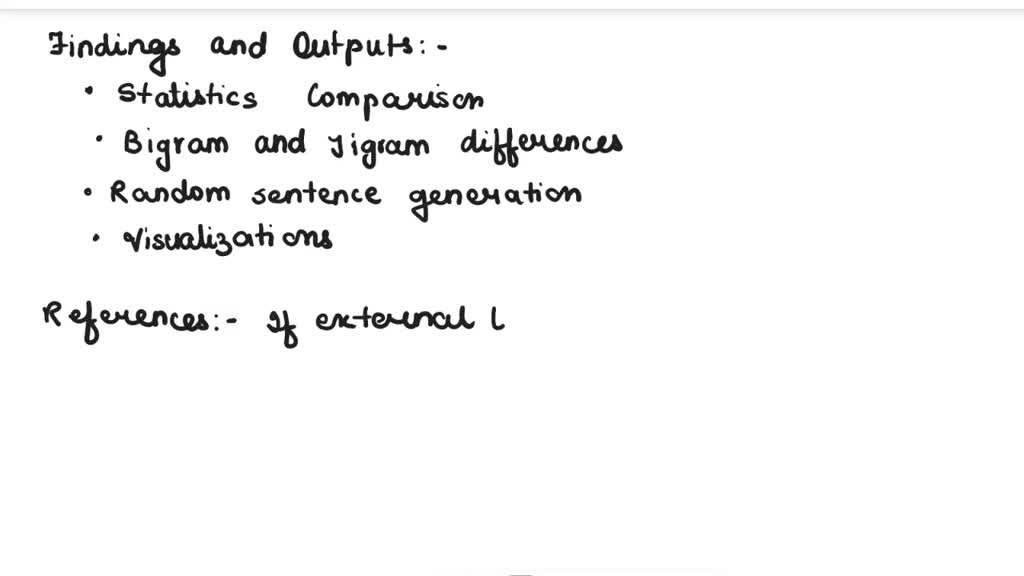 Findings and Outputs:-
• Statistics Comparison
• Bigram and Jigram differences
• Random sentence generation
• Visualizations
References:- If external l